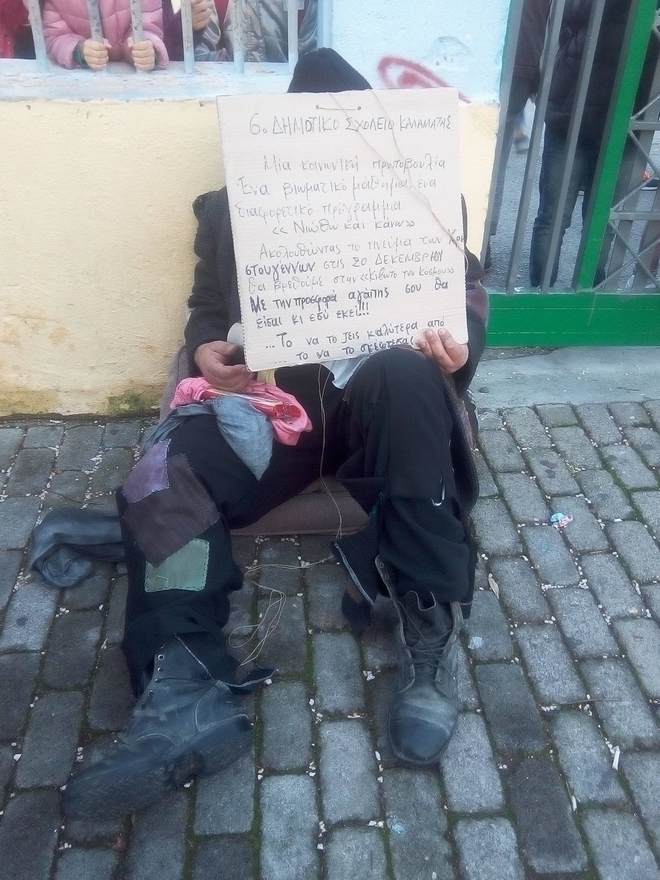 6ο ΔΗΜΟΤΙΚΟ ΣΧΟΛΕΙΟ ΚΑΛΑΜΑΤΑΣ
Μια κοινωνική πρωτοβουλία
Ένα βιωματικό μάθημα, ένα
διαφορετικό πρόγραμμα
<< Νιώθω και κάνω >>
Ακολουθώντας το πνεύμα των Χρι
στουγέννων στις 20 ΔΕΚΕΜΒΡΙΟΥ
θα βρεθούμε στην <<Κιβωτό του Κόσμου>>
Με την προσφορά αγάπης σου θα
είσαι κι εσύ εκεί!!!
...Το να το ζεις καλύτερα από
... το να το σκέφτεσαι